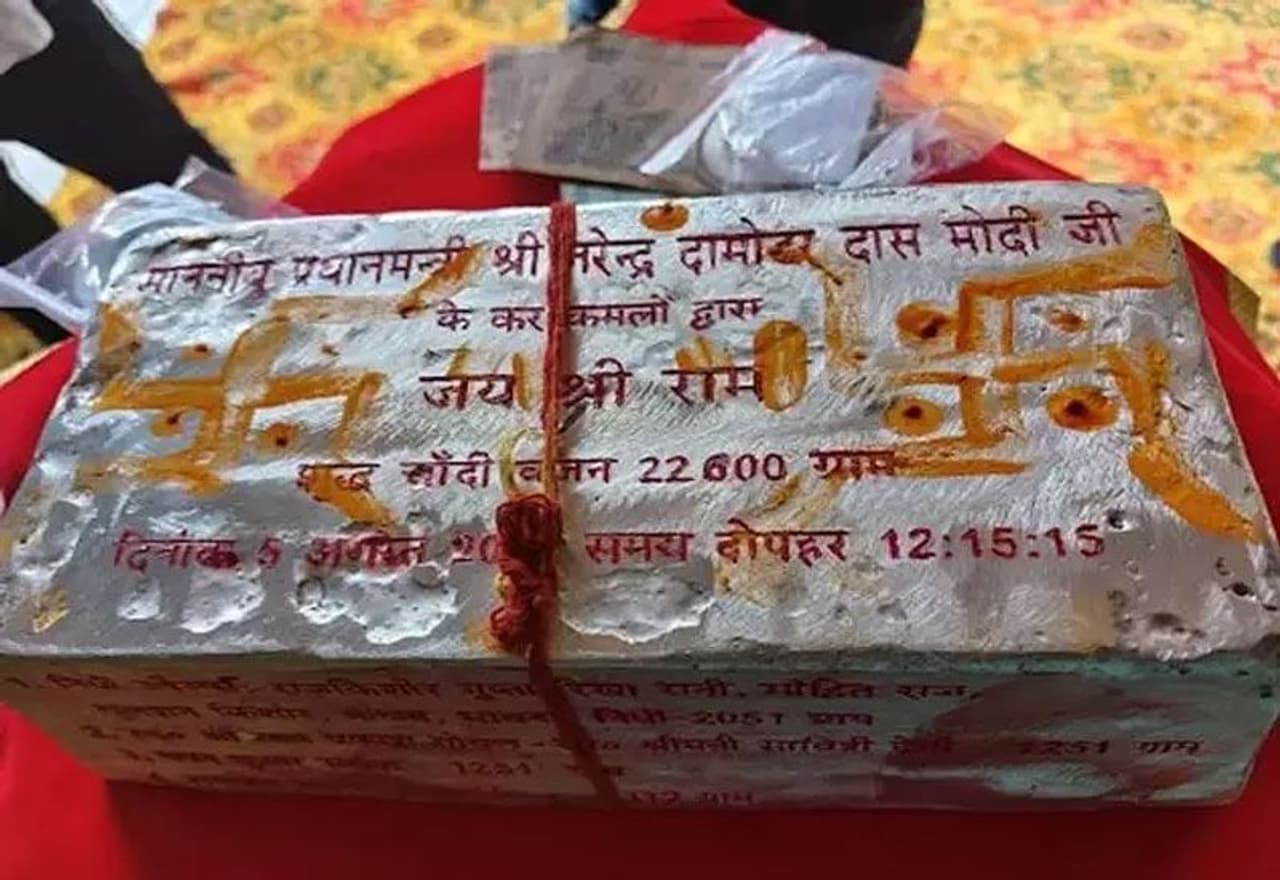 माननीय प्रधानमन्त्री श्री नरेन्द्र दामोदर दास मोदी जी
के कर कमलों द्वारा
जय श्री राम
शुद्ध चाँदी वजन 22600 ग्राम
दिनांक 5 अगस्त 20 समय दोपहर 12:15:15
राजकिशोर गुप्ता रेखा रानी, मोहित राज,
2057 ग्राम
2. श्रीमती सावित्री देवी 1251 ग्राम
3. 1251
ग्राम